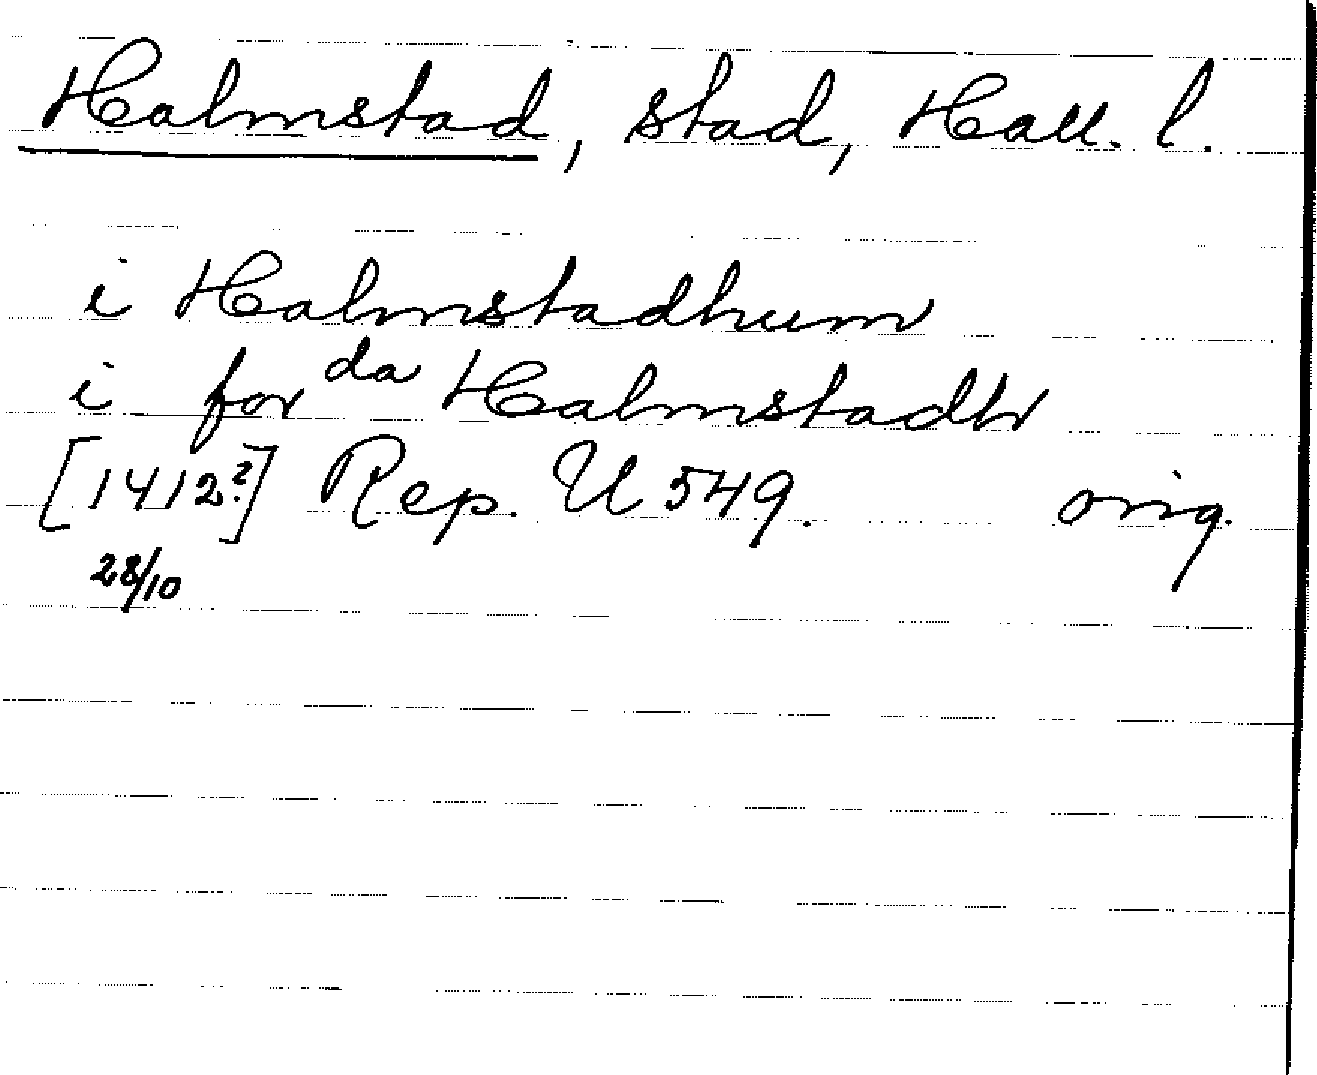 Halmstad, stad, Hall. l.
i Halmstadhum
i forda Halmstadh
[1412?] Rep. U 549. orig.
28/10